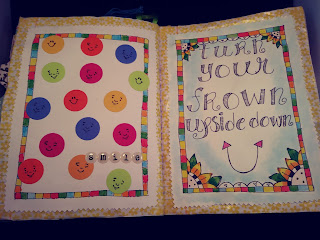 smile
turn
your
frown
upside down